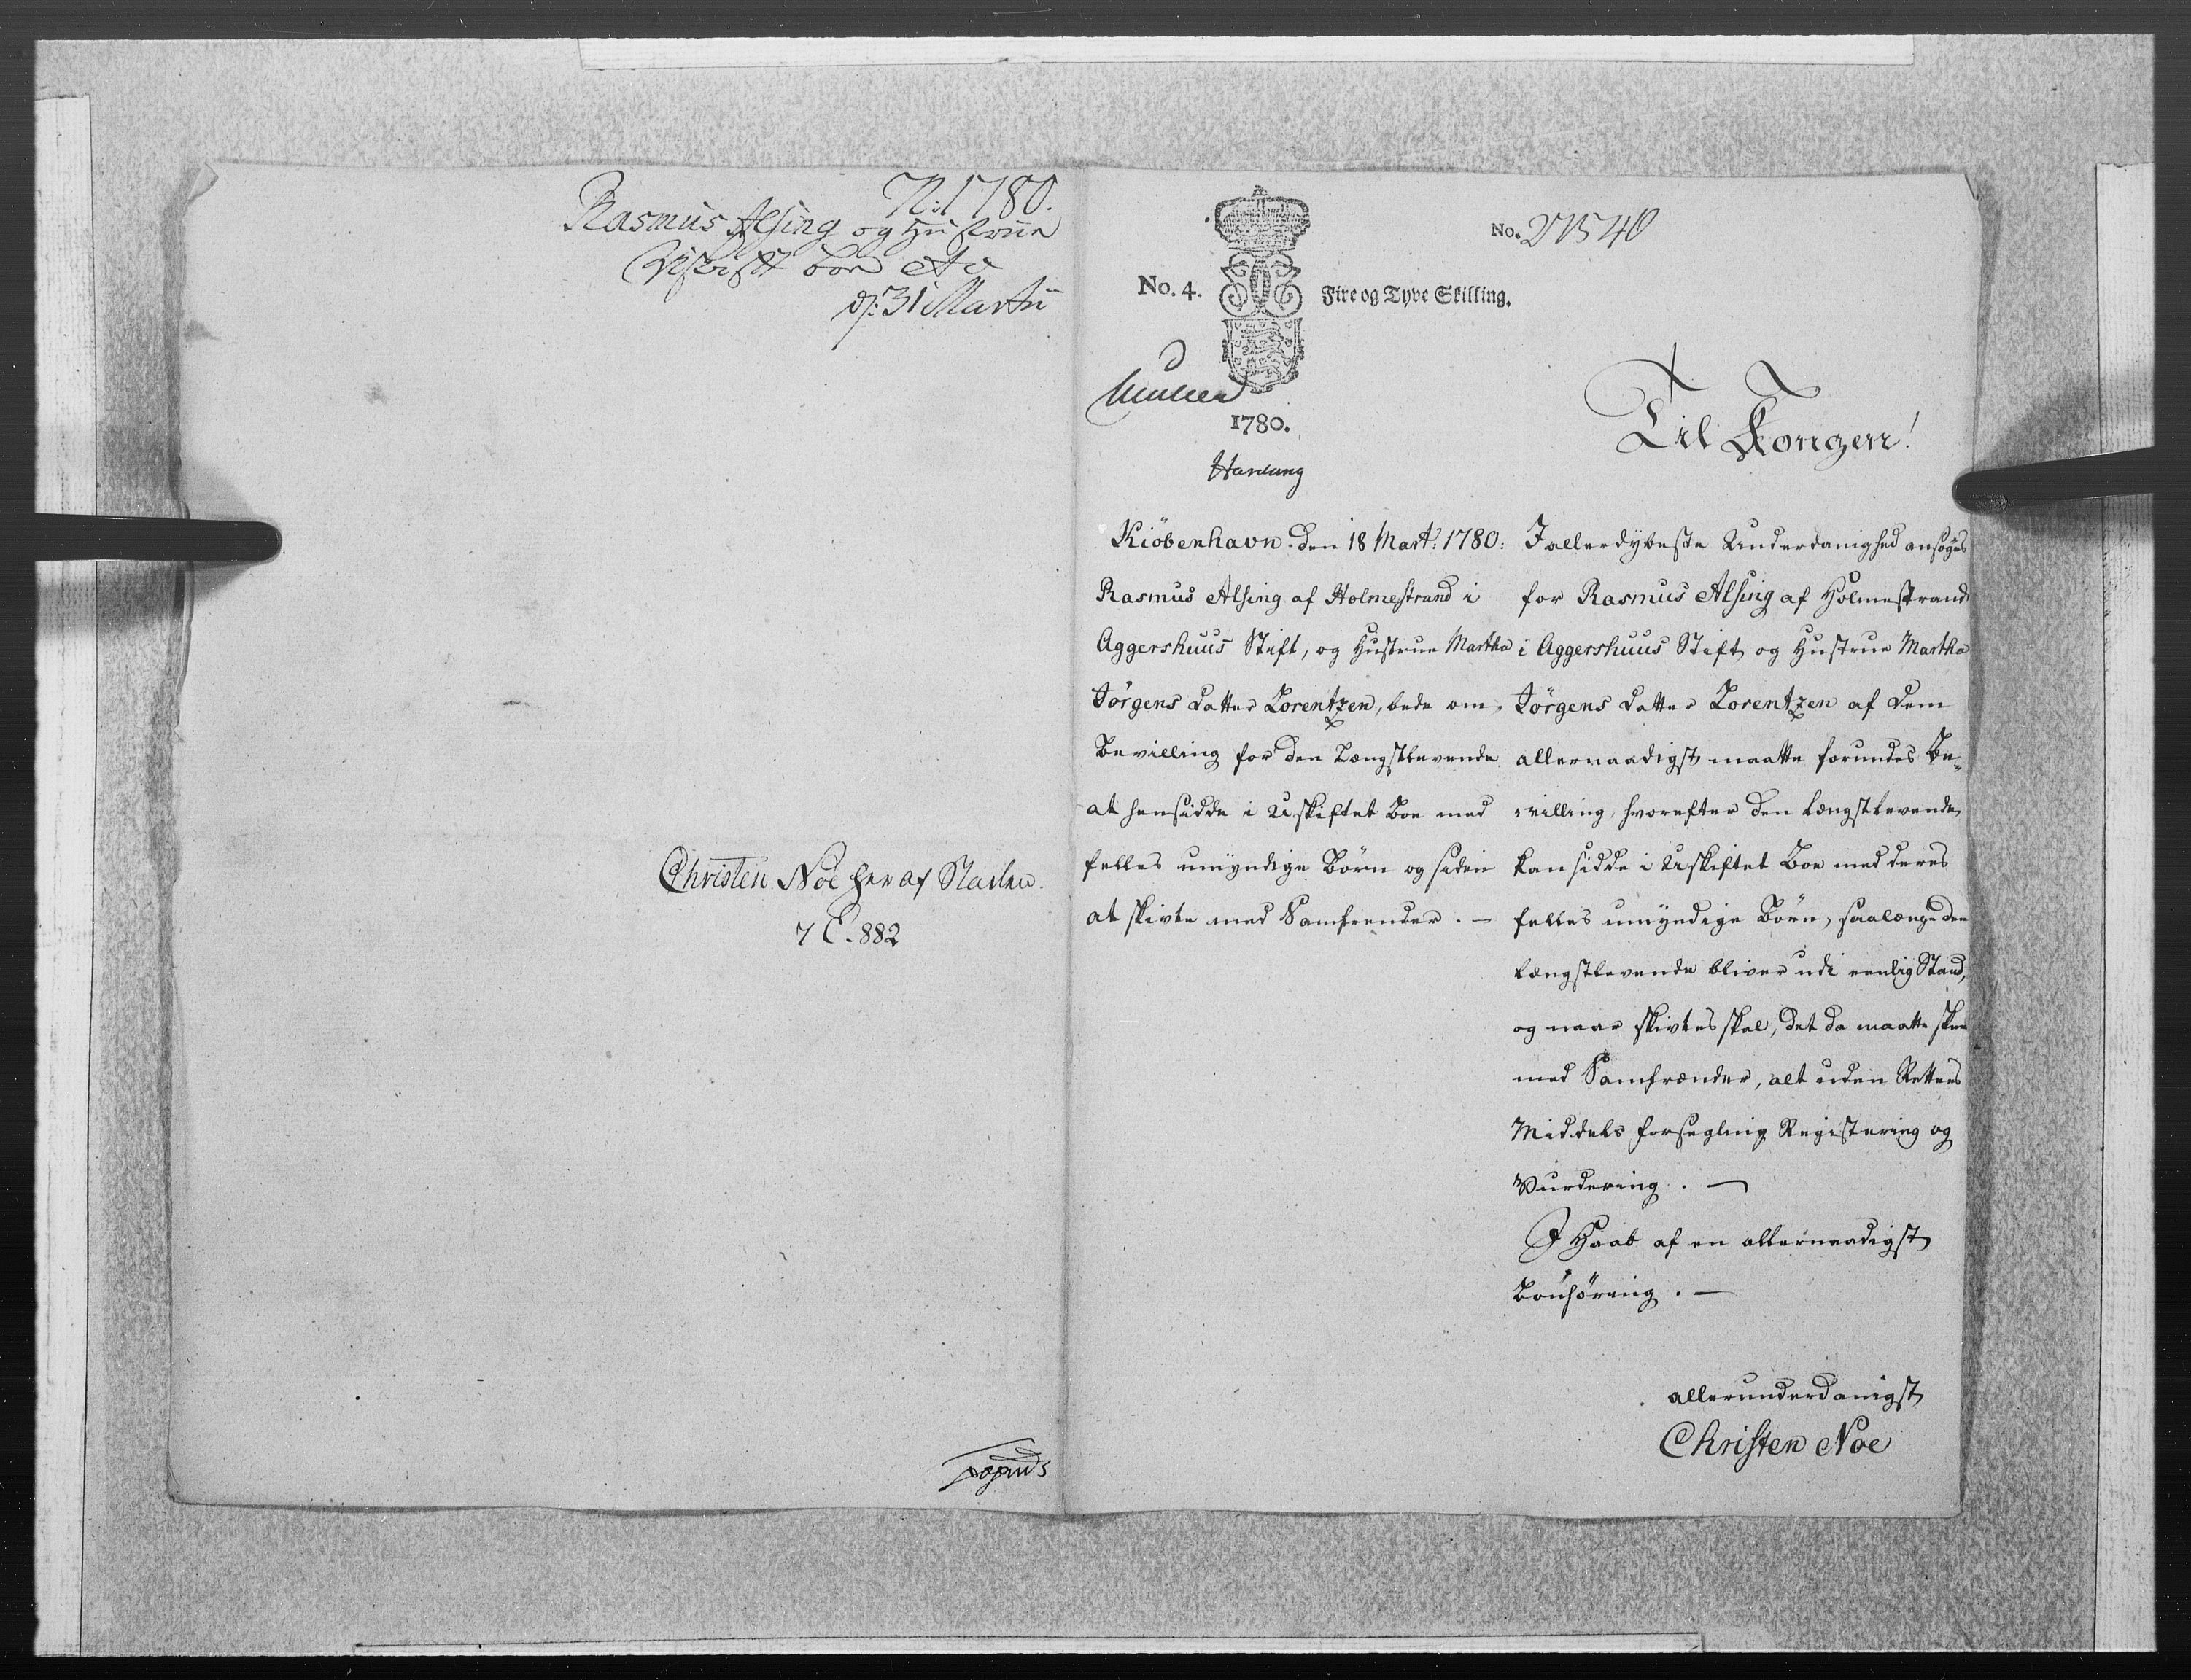 N: 1780.
Rasmus Alsing og Hustrue
Uskift boe etc
d: 31 Martii
Christen Noe her af Staden.
7 C. 882
No. 27540
No. 4. Fire og Tyve Skilling.
1780.
Til Kongen!
Kiöbenhavn. den 18 Mart: 1780:
Rasmus Alsing af Holmestrand i
Aggershuus Stift, og Hustrue Martha
Jörgens datter Lorentzen, bede om
Bevilling for den Længstlevende
at hensidde i Uskiftet Boe med
felles umyndige Börn og siden
at skivte med Samfrender. -
I allerdybeste Underdanighed ansøges
for Rasmus Alsing af Holmestrand
i Aggershuus Stift og Hustrue Martha
Jörgens datter Lorentzen af dem
allernaadigst maatte forundes Be-
villing, hvorefter den længstlevende
kan sidde i Uskiftet Boe med deres
felles umyndige Börn, saalænge den
længstlevende bliver udi eenlig Stand,
og naar skivtes skal, det da maatte skee
med Samfrænder, alt uden Rettens
Middels Forsegling Registering og
Vurdering. -
I Haab af en allernaadigst
Bönhöring. -
allerunderdanigst
Christen Noe